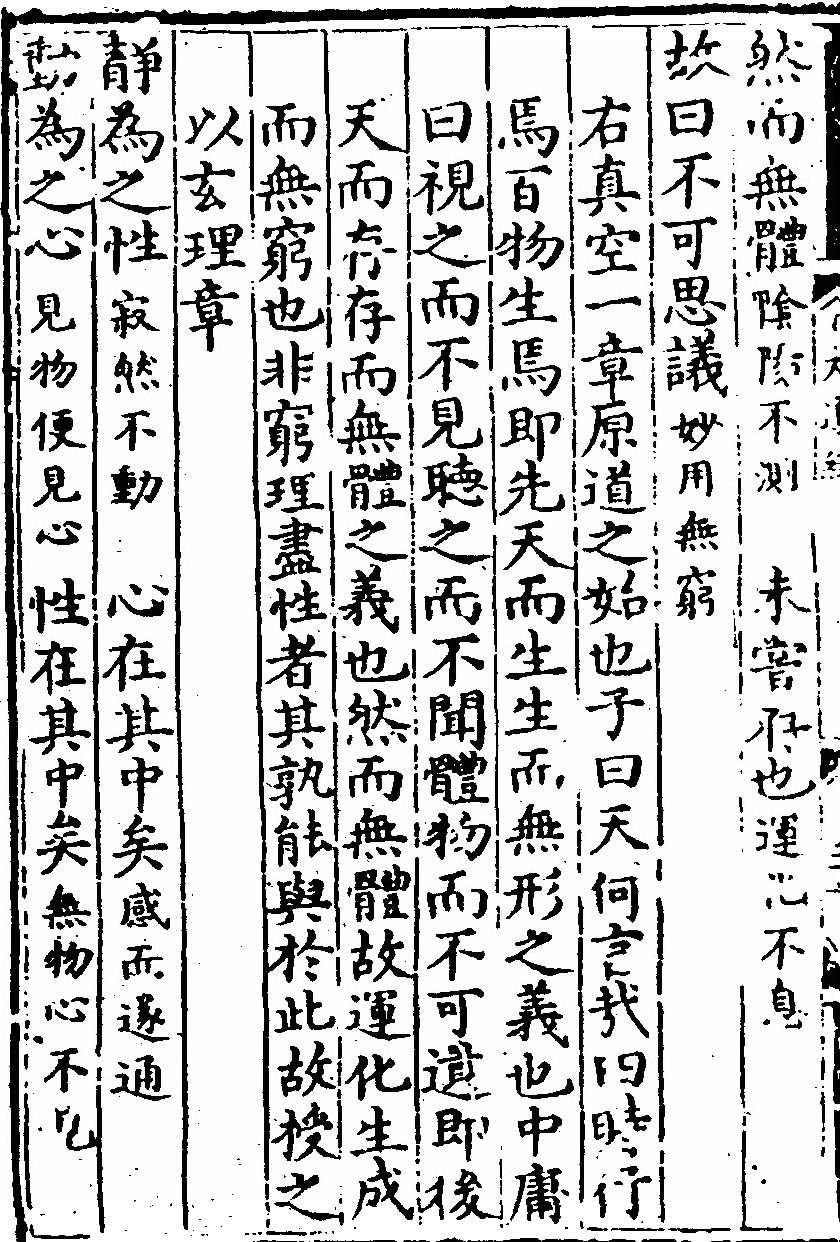 然而無體陰陽不測　未嘗存也運化不息
故曰不可思議妙用無窮
右真空一章原道之始也子曰天何言哉四時行
焉百物生焉即先天而生生而無形之義也中庸
曰視之而不見聽之而不聞體物而不可遺即後
天而存存而無體之義也然而無體故運化生成
而無窮也非窮理盡性者其孰能與於此故授之
以玄理章
靜為之性寂然不動　心在其中矣感而遂通
動為之心見物便見心　性在其中矣無物心不見